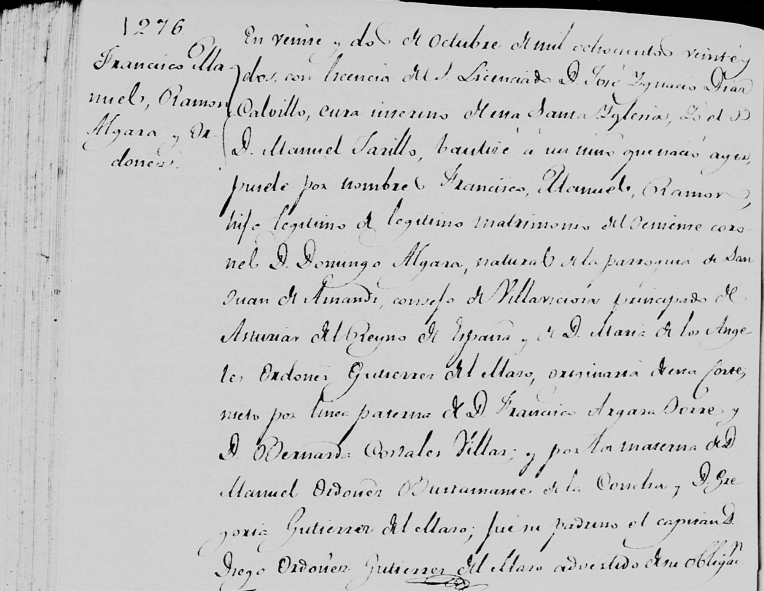 1276
Francisco Ma-
nuel, Ramon
Algara y Or-
doñez.
En veinte y dos de Octubre de mil ochocientos veinte y
dos, con licencia del S. Licenciado D. José Ygnacio Diaz
Calvillo, cura interino de esta Santa Yglesia, Yo el B
D. Manuel Tarillo, bautizé á un niño que nació ayer,
pusele por nombre Francisco, Manuel, Ramon,
hijo legitimo de legitimo matrimonio del Teniente coro-
nel D. Domingo Algara, natural de la parroquia de San
Juan de Amandi, consejo de Villaviciosa principado de
Asturias del Reyno de España y de D. Maria de los Ange-
les Ordoñez Gutierrez del Mazo, originaria de esta Corte,
nieto por linea paterna de D. Francisco Argara Torre y
D. Bernarda Costales Villar; y por la materna de D.
Manuel Ordoñez Bustamante de la Concha y D. Gre
goria Gutierrez del Mazo; fué su padrino el capitan D.
Diego Ordoñez Gutierrez del Mazo advertido de su obligac.n